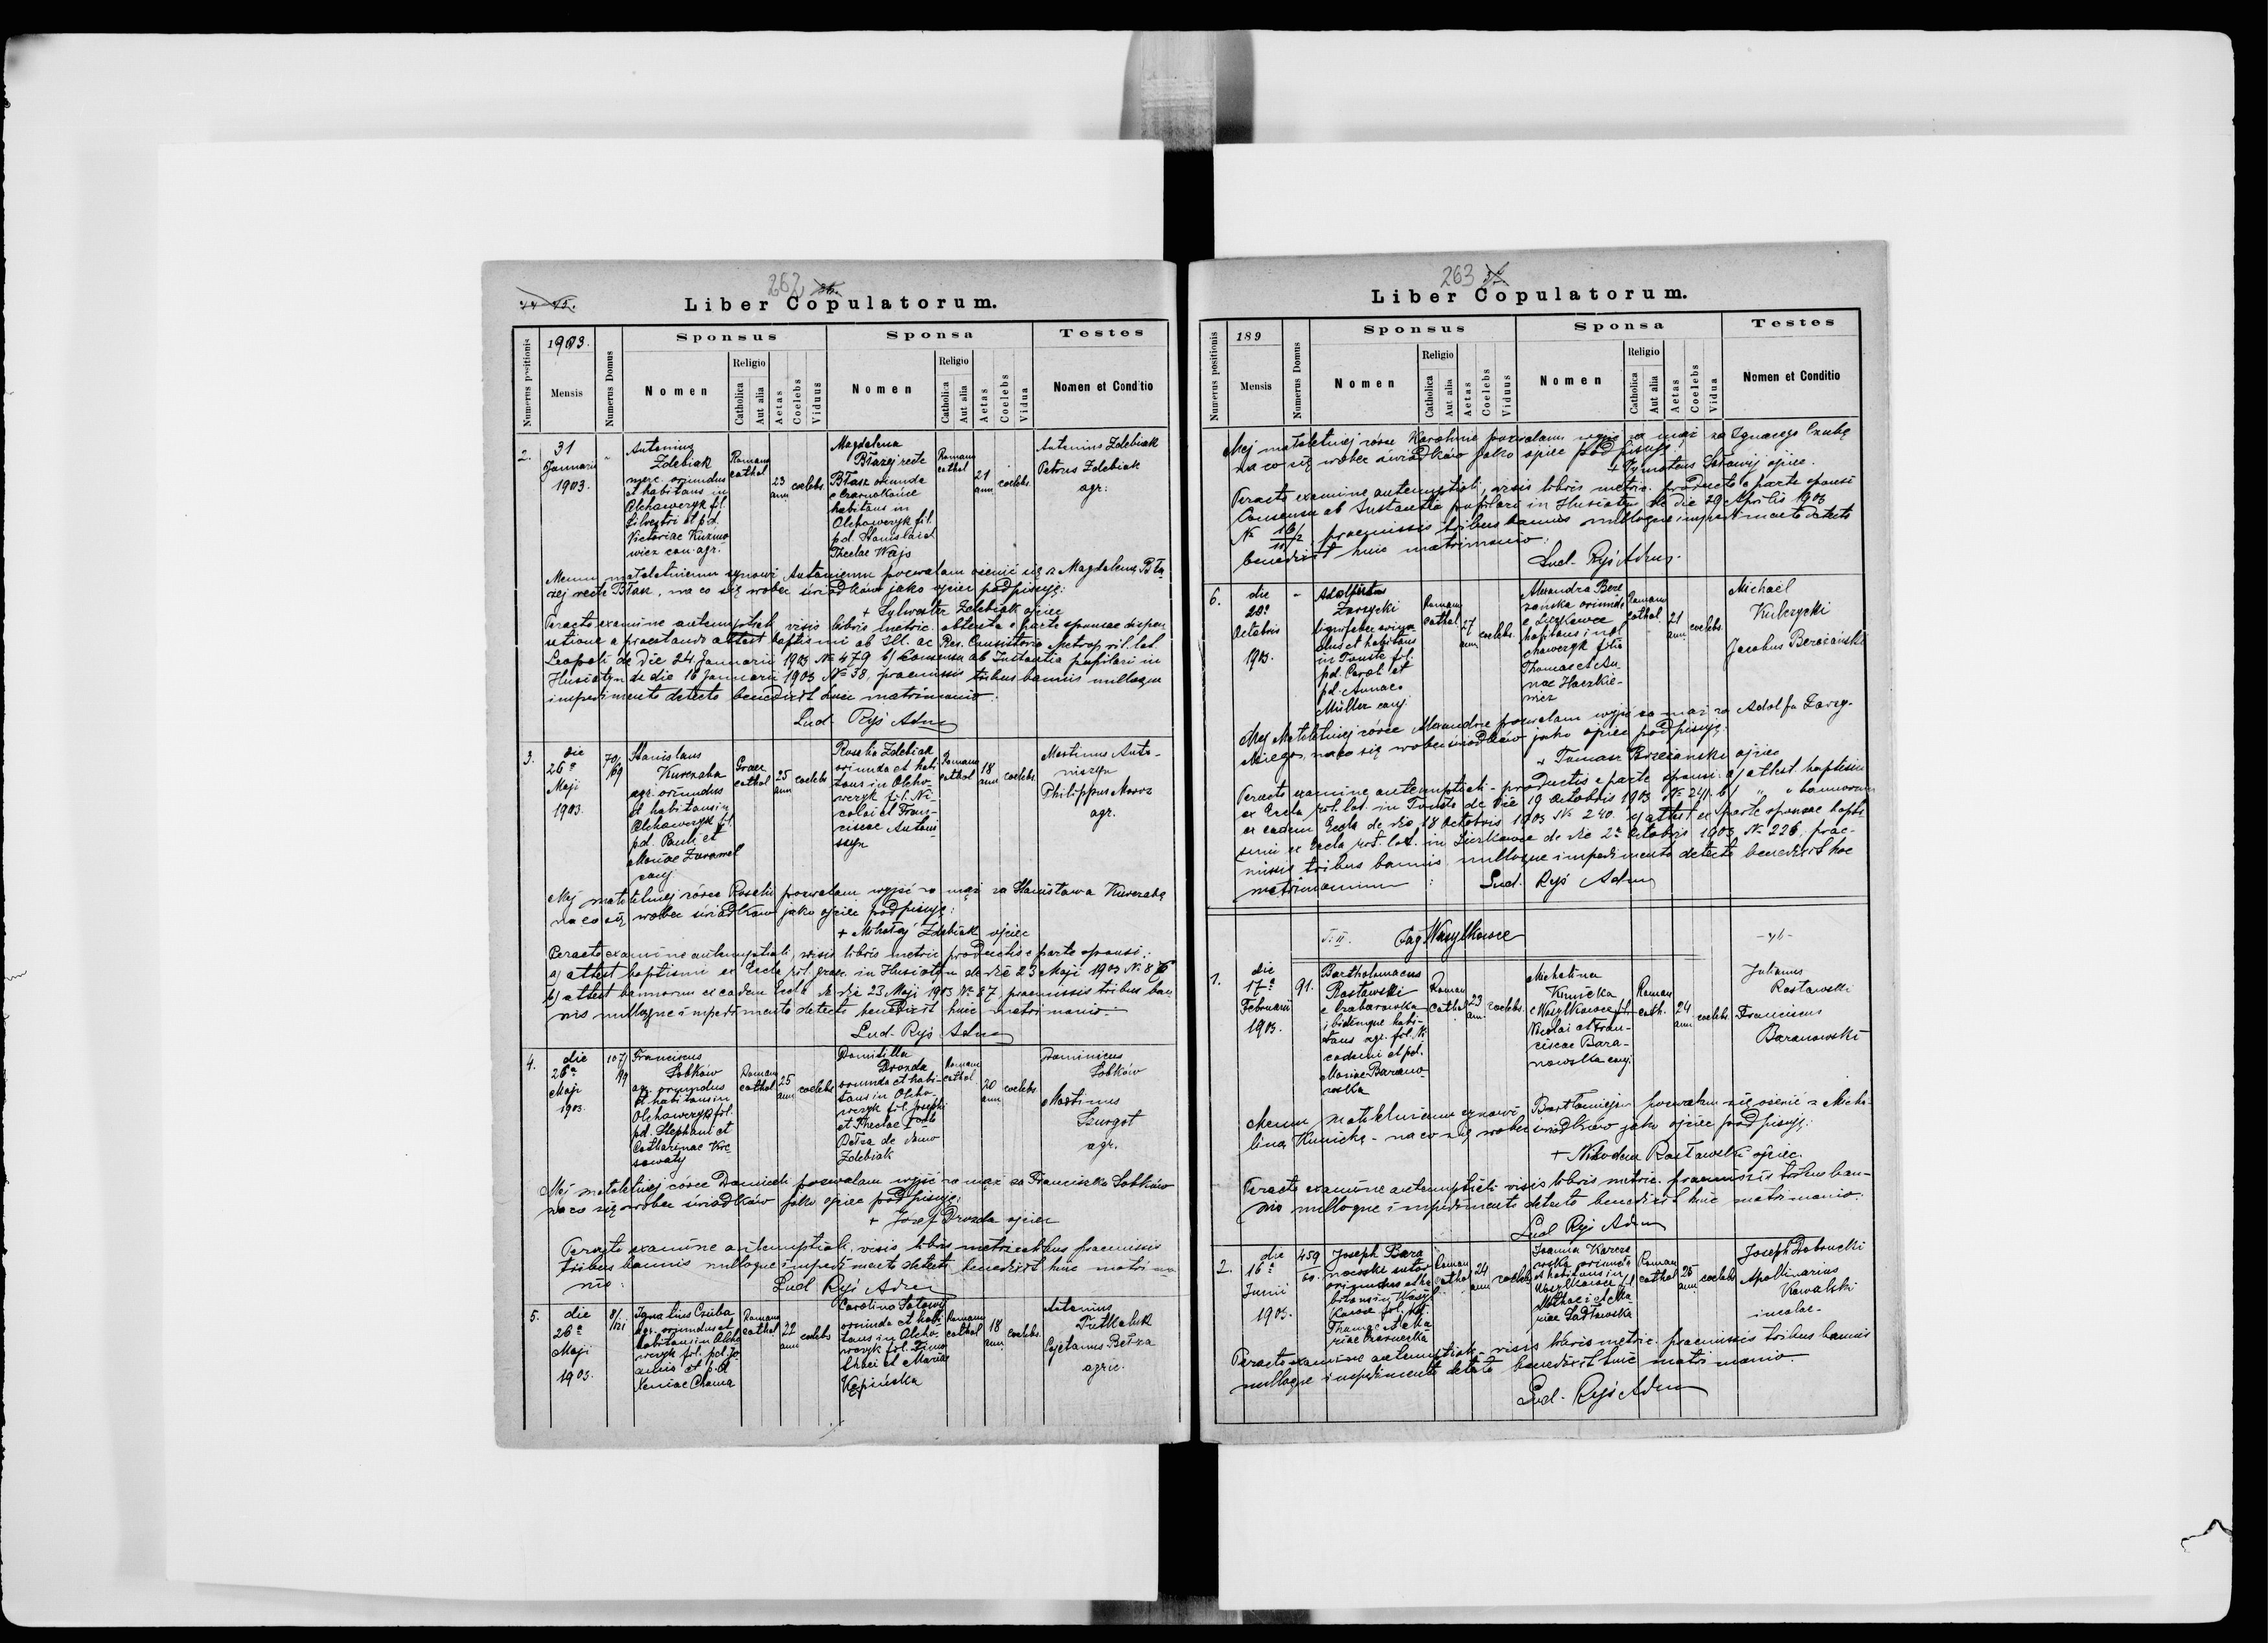 262
Liber Copulatorum.
Numerus positionis
1903.
Mensis
Numerus Domus
Sponsus
Nomen
Religio
Catholica
Aut alia
Aetas
Coelebs
Viduus
Sponsa
Nomen
Religio
Catholica
Aut alia
Aetas
Coelebs
Vidua
Testes
Nomen et Conditio
2.
31
Januarii
1903.
Antonius
Zdebiak
merc. oriundus
et habitans in
Olchowczyk fil.
Silvestri et pd.
Victoriae Kuzmo
wicz con. agr.
Roman
cathol
23
ann
coelebs
Magdalena
Błażej recte
Błasz oriunda
e Czarnokońce
habitans in
Olchowczyk fil.
pd. Stanislai et
Theclae Wajs
Romana
cathol
21
ann
coelebs.
Antonius Zdebiak
Petrus Zdebiak
agr:
Memu małoletniemu synowi Antoniemu pozwalam ożenić się z Magdaleną Bła
żej recte Błasz, na co się wobec świadków jako ojciec podpisuję:
+ Sylwester Zdebiak ojciec
Peracto examine antenuptiali visis libris metric. obtenta e parte sponsae dispen
satione a praestando attest baptismi ab Ill. ac Res. Consistorio Metrop. rit. lat.
Leopoli de die 24 Januarii 1903 No 479 b/ Consensu ab Instantia pupilari in
Husiatyn de die 16 Januarii 1903 No 38, praemissis tribus bannis nulloque
impedimento detecto benedixit huic matrimonio.
Lud Ryś Adm
3.
die
26a
Maji
1903.
70/
69
Stanislaus
Kurczaba
agr. oriundus
et habitans in
Olchowczyk fil.
pd. Pauli et
Mariae Zuramel
conj
Graec
cathol
25
ann
coelebs
Rosalia Zdebiak
oriunda et habi
tans in Olcho-
wczyk fil. Ni-
colai et Fran-
ciscae Antoni
szyn
Romana
cathol
18
ann
coelebs
Martinus Anto-
niszyn
Philippus Moroz
agr.
Mej małoletniej córce Rosalii pozwalam wyjść za mąż za Stanisława Kurczabę
na co się wobec świadków jako ojciec podpisuję:
+ Mikołaj Zdebiak ojciec
Peracto examine antenuptiali, visis libris metric productis e parte sponsi:
a) attest baptismi ex Eccla rit. graec. in Husiatyn de die 23 Maji 1903 N. 86
b) attest bannorum ex eadem Eccla de die 23 Maji 1903 No 87 praemissis tribus ban
nis nulloque impedimento detecto benedixit huic matrimonio.
Lud. Ryś Adm
4.
die
26a
Maji
1903.
107/
99
Franciscus
Sobków
agr. oriundus
et habitans in
Olchowczyk fil.
pd. Stephani et
Catharinae
Romana
cathol
25
ann
coelebs
Domitilla
Drozda
oriunda et habi-
tans in Olcho-
wczyk fil. Josephi
et Theclae
de domo
Zdebiak
Romana
cathol
20
ann
coelebs
Dominicus
Sobków
Martinus
Szurgot
agr.
Mej małoletniej córce pozwalam wyjść za mąż za Franciszka Sobków
na co się wobec świadków jako ojciec podpisuję:
+ Józef Drozda ojciec
Peracto examine antenuptiali, visis libris metricalibus praemissis
tribus bannis nulloque impedimento detecto benedixit huic matrimo
nio:
Lud Ryś Adm
5.
die
26a
Maji
1903.
8/
121
Ignatius Czuba
agr. oriundus et
habitans in Olcho
wczyk fil. pd. Jo
annis et pd.
Xeniae Chama
Romana
cathol
22
ann
coelebs
Carolina Sołowij
oriunda et habi
tans in Olcho-
wczyk fil. Timo
thaei et Mariae
Kępińska
Romana
cathol
18
ann.
coelebs.
Antonius
Tutkaluk
Cajetanus Betza
agric.
263
Liber Copulatorum.
Numerus positionis
189
Mensis
Numerus Domus
Sponsus
Nomen
Religio
Catholica
Aut alia
Aetas
Coelebs
Viduus
Sponsa
Nomen
Religio
Catholica
Aut alia
Aetas
Coelebs
Vidua
Testes
Nomen et Conditio
Mej małoletniej córce Karolinie pozwalam wyjść za mąż za Ignacego Czubę
na co się wobec świadków jako ojciec podpisuję:
+ Tymoteus Sołowij ojciec.
Peracto examine antenuptiali, visis libris metric. producto e parte sponsi
Consensu ab Instantia pupilari in Husiatyn de die 29 Aprilis 1903
No praemissis tribus bannis nulloque impedimento detecto
benedixit huic matrimonio:
Lud. Ryś Adm.
6.
die
20a
Octobris
1903.
Adolfus
Zarzycki
lignifaber oriun
dus et habitans
in Touste fil.
pd. Caroli et
pd. Annae
Müller conj.
Romana
cathol
27
ann
coelebs
Alexandra Bere
zanska oriunda
e Liczkowce
habitans in Ol
chowczyk filia
Thomae et An
nae Haczkie-
wicz
Romana
cathol
21
ann
coelebs
Michaël
Kulczycki
Jacobus Bereżański
Mej małoletniej córce Alexandrze pozwalam wyjść za mąż za Adolfa Zarzy-
ckiego, na co się wobec świadków jako ojciec podpisuję:
+ Tomasz Brzeżański ojciec
Peracto examine antenuptiali - productis e parte sponsi: a/ attest. baptismi
ex Eccla rit. lat. in Touste de die 19 Octobris 1903 No 241. b/ " " bannorum
ex eadem Eccla de die 18 Octobris 1903 No 240. c/ attest ex parte sponsae bapti
smi ex Eccla rit. lat. in Liczkowce de die 2a Octobris 1903 No 226; prae-
missis tribus bannis nulloque impedimento detecto benedixit hoc
matrimonium:
Lud. Ryś Adm
T. II.
Pag Wasylkowce
1.
die
17a
Februarii
1903.
91.
Bartholomaeus
Rostawski
e Czabarowka
ibidemque habi-
tans agr. fil. Ni
codemi et pd.
Mariae Barano-
wska
Roman
cathol
23
ann.
coelebs.
Michalina
Kunicka
e Wasylkowce fil
Nicolai et Fran-
ciscae Bara-
nowska conj.
Roman
cath.
24
ann
coelebs
Julianus
Rostawski
Franciscus
Baranowski
Memu małoletniemu synowi Bartłomiejowi pozwalam się ożenić z Micha-
liną Kunicką - na co się wobec świadków jako ojciec podpisuję:
+ Nikodem Rostawski ojciec.
Peracto examine antenuptiali visis libris metric. praemissis tribus ban-
nis nulloque impedimento detecto benedixit huic matrimonio.
Lud Ryś Adm
2.
die
16a
Junii
1903.
459
60.
Joseph Bara
nowski sutor
oriundus et ha
bitans in Wasyl
kowce fil.
Thomae et Ma
riae Czarnecka
Roman
cathol
24
ann
coelebs
Joanna Karcze
wska oriunda
et habitans in
Wasylkowce fil
Mathaei et Ma
riae Sadłowska
Roman
cathol
26
ann
coelebs
Joseph Dobrucki
Apollinarius
Kowalski
incolae.
Peracto examine antenuptiali - visis libris metric. praemissis tribus bannis
nulloque impedimento detecto benedixit huic matrimonio.
Lud. Ryś Adm